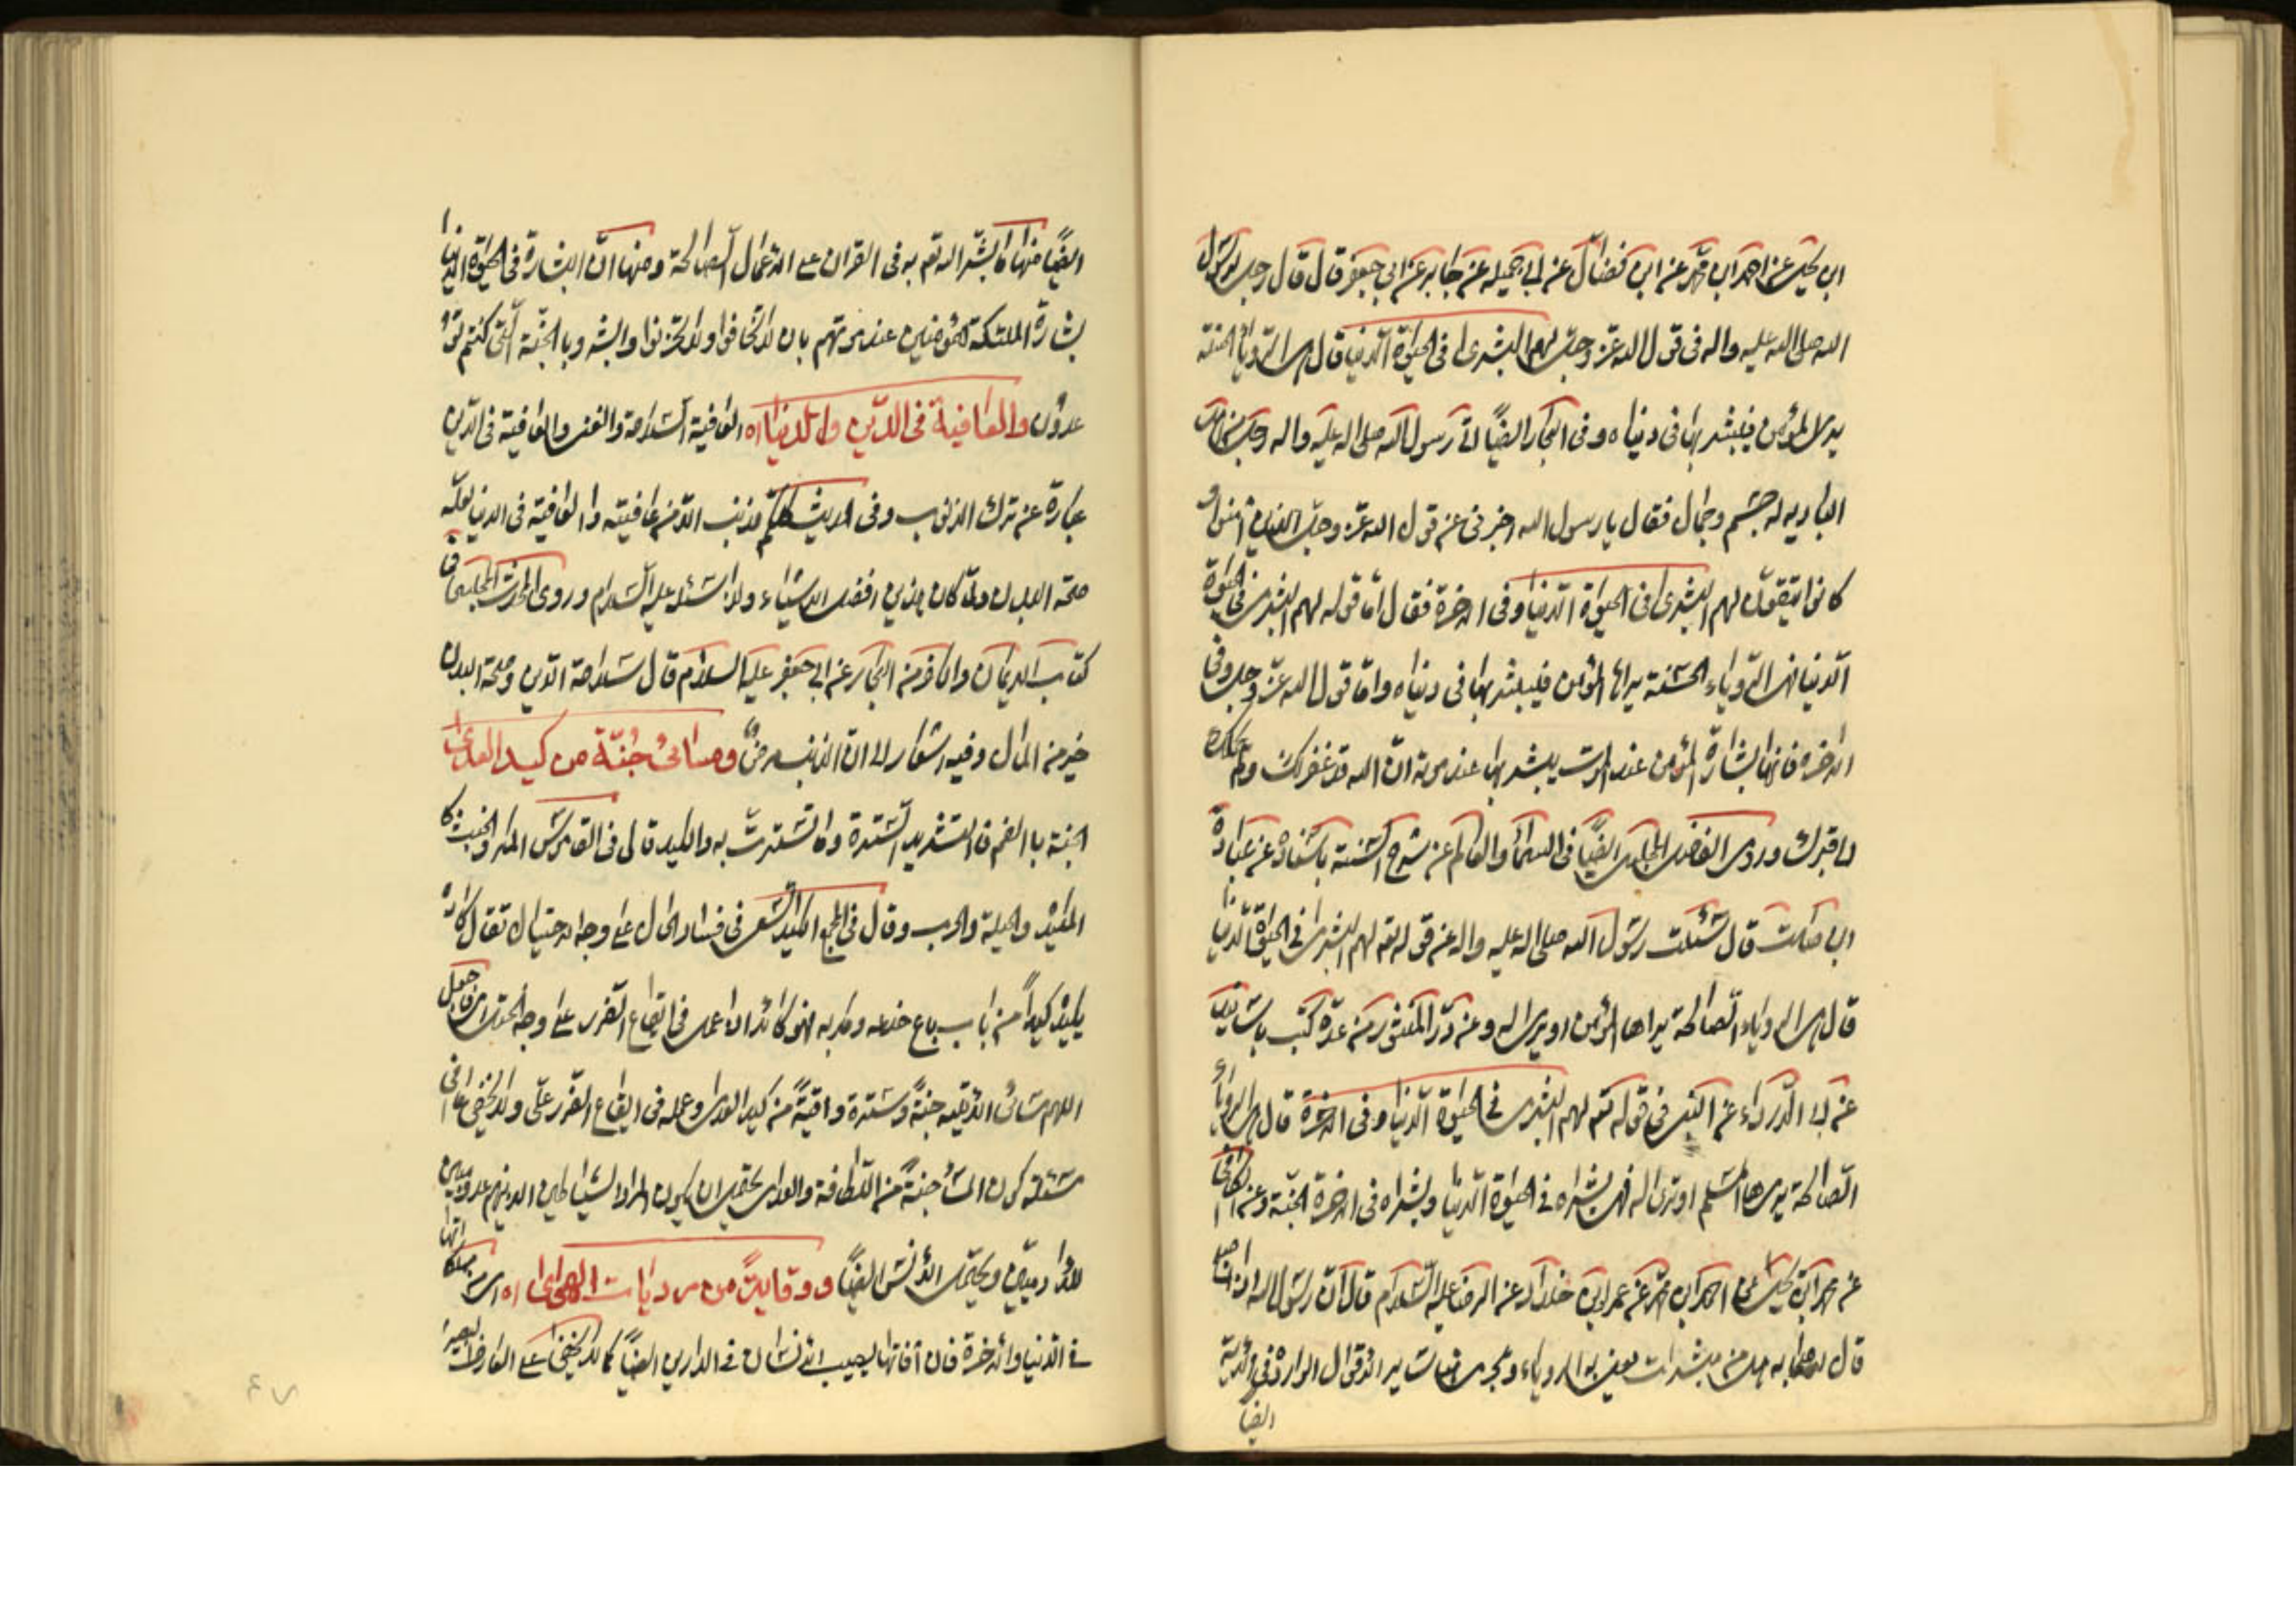 ابن يحيى عن احمد ابن محمد عن ابن فضّال عن ابى جميله عن جابر عن ابى جعفر قال قال رجل لرسول
الله صلى الله عليه واله فى قول الله عزّ وجلّ لهم البشرى فى الحيوة الدّنيا قال هى الرّؤيا الحسنة
يرى المؤمن فيبشر بها فى دنياه وفى البحار ايضًا اتى رسول الله صلى الله عليه واله رجل من اهل
البادية له جسم وجمال فقال يا رسول الله اخبرنى عن قول الله عزّ وجلّ الذين امنوا و
كانوا يتّقون لهم البشرى فى الحيوة الدّنيا وفى الاخرة فقال امّا قوله لهم البشرى فى الحيوة
الدّنيا فهى الرّوياء الحسنة يراها المؤمن فيبشر بها فى دنياه وامّا قول الله عزّ وجلّ وفى
الاخرة فانها بشارة المؤمن عند الموت يبشر بها عند موته انّ الله قد غفر لك ولمن يحملك
الى قبرك وروى الفاضل المجلسى ايضًا فى السماء والعالم عن شرح السّنة باسناده عن عبادة
ابن صامت قال سئلت رسول الله صلى الله عليه واله عن قوله تع لهم البشرى فى الحيوة الدّنيا
قال هى الروياء الصّالحة يراها المؤمن او يرى له وعن درّ المنثور من عدّة كتب باسانيد
عن ابى الدّرداء عن النبى فى قوله تع لهم البشرى فى الحيوة الدّنيا وفى الاخرة قال هى الروياء
الصّالحة يرها المسلم او ترى له فهى بشراه فى الحيوة الدّنيا وبشراه فى الاخرة الجنّة وعن الكافى
عن محمد ابن يحيى عن احمد ابن محمد عن معمر ابن خلاد عن الرضا عليه السّلام قال انّ رسول الله اذا اصبح
قال لاصحابه هل من مبشرات يعنى به الروياء وتجرى تفاسير الاقوال الواردة فى الاية
ايضًا
ايضًا منها ما بشّر الله تع به فى القران على الاعمال الصالحة ومنها انّ البشارة فى الحيوة الدنيا
بشارة الملئكة للمؤمنين عند موتهم بان لا تخافوا ولا تحزنوا وابشروا بالجنّة الّتى كنتم تو
عدون والعافية فى الدّين والدنيا اه العافية السّلامة والعفو والعافية فى الدّين
عبارة عن ترك الذنوب وفى الحديث من عافيته والعافية فى الدنيا لعلّه
صحّة البدن ولمّا كان هذين افضل الاشياء ولذا سئله عليه السّلام وروى المحدث المجلسى فى
كتاب الايمان والكفر من البحار عن ابى جعفر عليه السلام قال سلامة الدّين وصحّة البدن
خير من المال وفيه اشعار الى انّ الذنب مرض ومسائى جُنّة من كيد العدى
الجنة بالضم فالتشديد السّترة وما تستّرت به والكيد قال فى القاموس المكر والخبث كا
المكيدة والحيلة والحرب وقال فى المجمع الكيد السّعى فى فساد الحال على وجه الاحتيال تقال كاده
يكيده كيدًا من باب باع خدعه ومكر به فهو كائد اى عمل فى ايقاع الضّرر على وجه الحيلة اى فاجعل
اللهم مسائى الاتية جنةً وسترة واقيةً من كيد العدى وعمله فى ايقاع الضّرر علىّ ولا يخفى ما فى
مسئلة كون المساء جنةً من اللّطافة والعدى يحتمل ان يكون المراد الشياطين الذينهم عدو مبين
للادميّين ويحتمل الانس ايضًا ووقايةً من مرديات الهوى اه اى من مهلكاتها
فى الدّنيا والاخرة فان آفاتها يصيب الانسان فى الدارين ايضًا كما لا يخفى على العارف البصير
٤٧